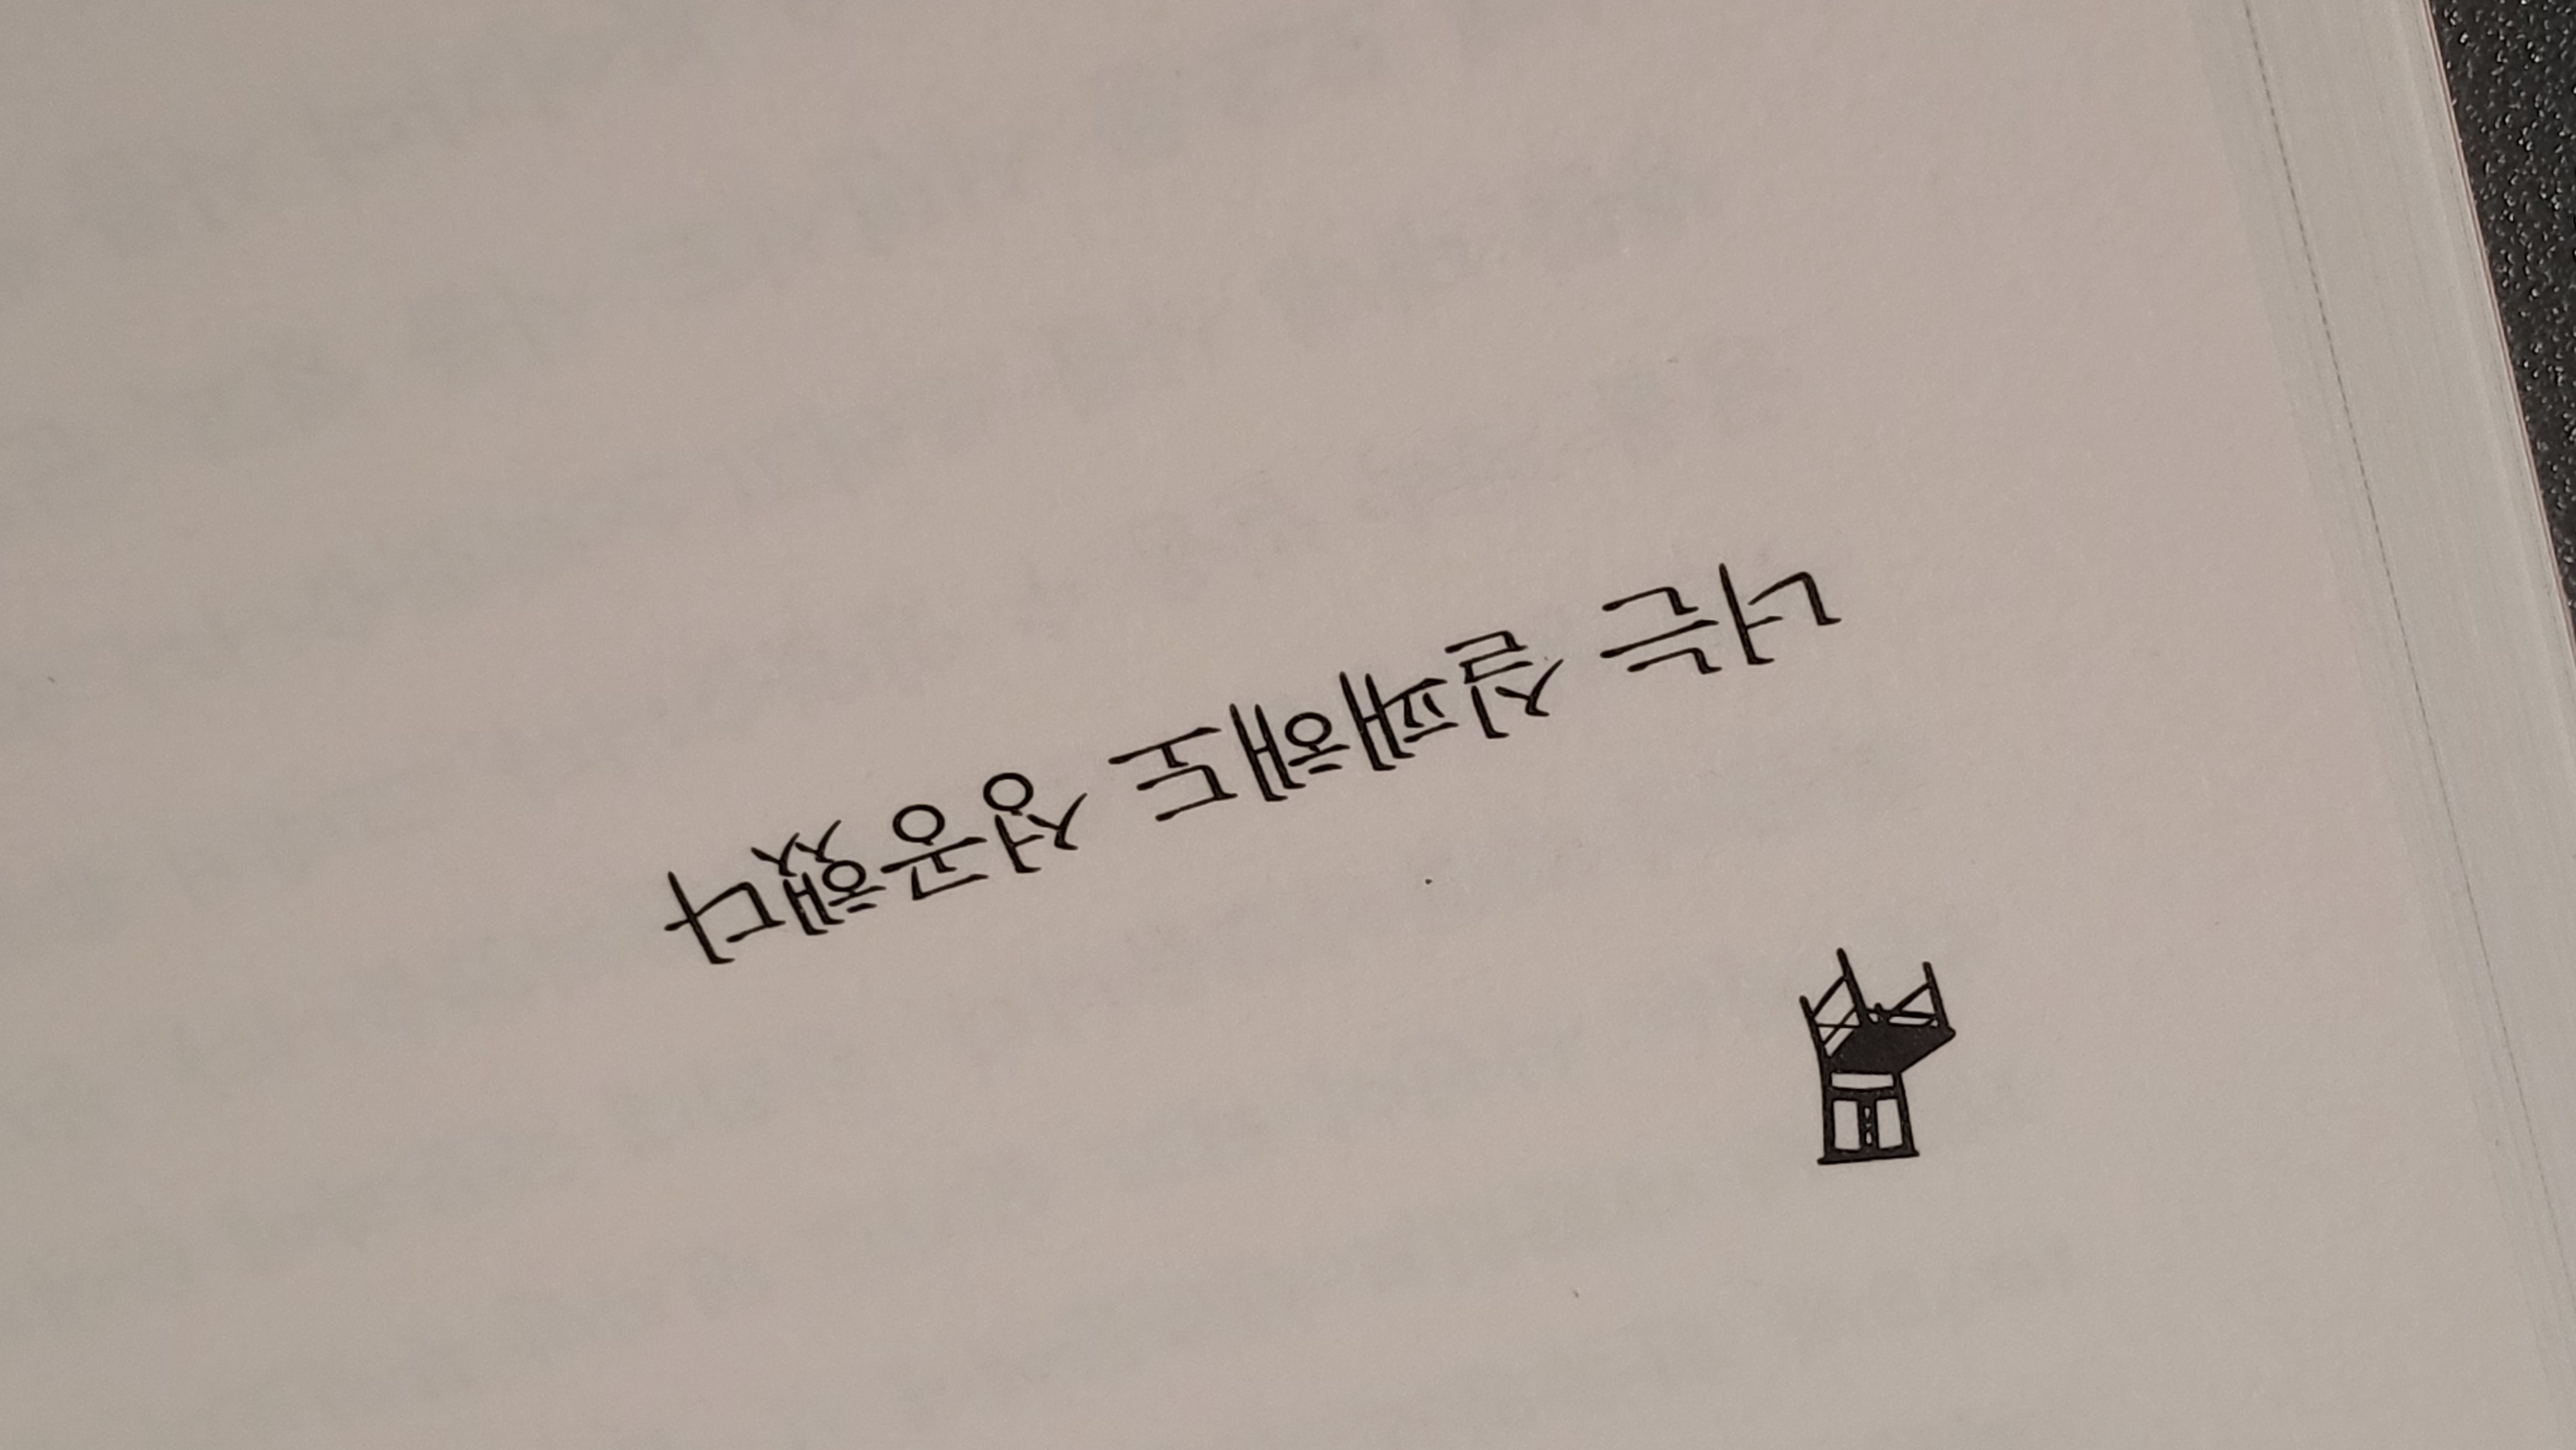 너는 실패해도 성공했다